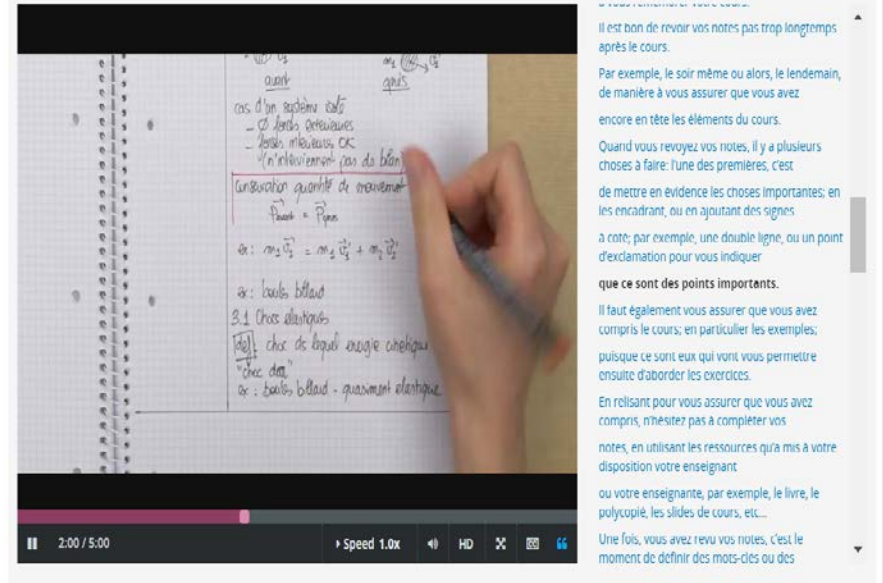 avant
après
cas d'un système isolé
- Ø forces extérieures
- forces intérieures OK
(n'interviennent pas ds bilan)
Conservation quantité de mouvement
P avant = P après
ex: m₁ v₁ = m₁ v₁' + m₂ v₂'
ex: boules billard
3.1 Chocs élastiques
def: choc ds lequel énergie cinétique
"choc
ex: boules billard - quasiment élastique
2:00 / 5:00
Speed 1.0x
HD
CC
à vous remémorer votre cours.
Il est bon de revoir vos notes pas trop longtemps
après le cours.
Par exemple, le soir même ou alors, le lendemain,
de manière à vous assurer que vous avez
encore en tête les éléments du cours.
Quand vous revoyez vos notes, il y a plusieurs
choses à faire: l'une des premières, c'est
de mettre en évidence les choses importantes; en
les encadrant, ou en ajoutant des signes
à coté; par exemple, une double ligne, ou un point
d'exclamation pour vous indiquer
que ce sont des points importants.
Il faut également vous assurer que vous avez
compris le cours; en particulier les exemples;
puisque ce sont eux qui vont vous permettre
ensuite d'aborder les exercices.
En relisant pour vous assurer que vous avez
compris, n'hésitez pas à compléter vos
notes, en utilisant les ressources qu'a mis à votre
disposition votre enseignant
ou votre enseignante, par exemple, le livre, le
polycopié, les slides de cours, etc...
Une fois, vous avez revu vos notes, c'est le
moment de définir des mots-clés ou des